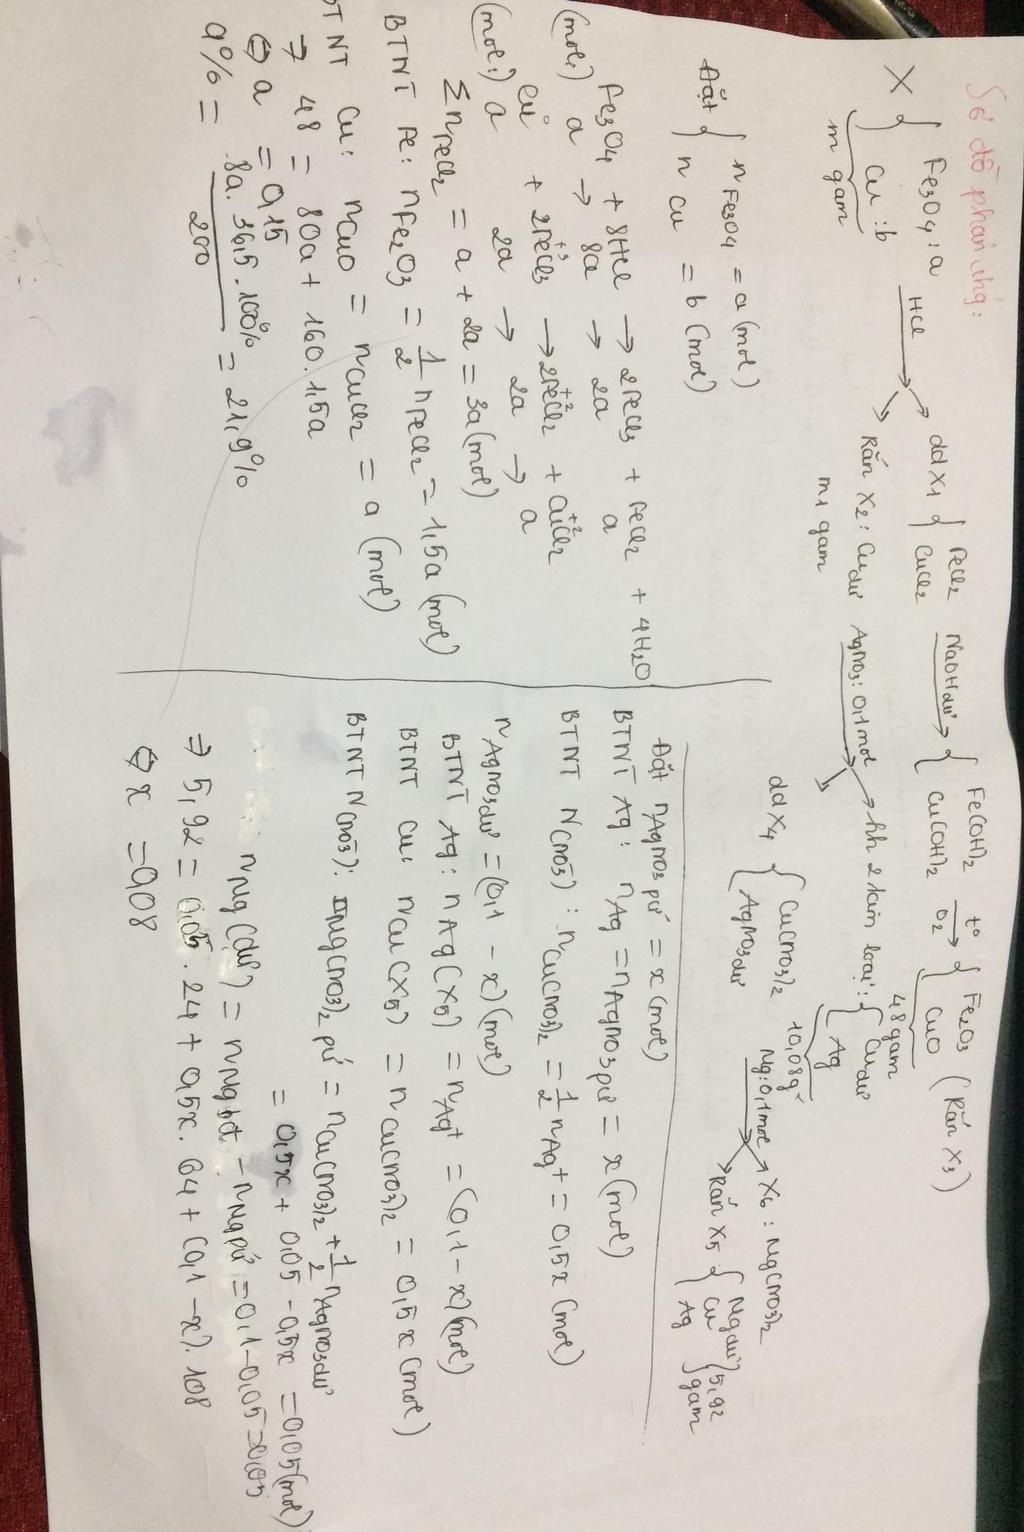 Sơ đồ phản ứng:
X { Fe3O4 : a
Cu : b
m gam
HCl →
dd X1 { FeCl2
CuCl2
NaOH dư →
{ Fe(OH)2
Cu(OH)2
t° → O2
{ Fe2O3
CuO (Rắn X3)
48 gam
Rắn X2 : Cu dư
m1 gam
AgNO3 : 0,1 mol →
hh 2 kim loại : { Cu dư
Ag
10,08g
dd X4 { Cu(NO3)2
AgNO3 dư
Mg : 0,1 mol →
X6 : Mg(NO3)2
Rắn X5 { Mg dư
Cu
Ag } 5,92 gam
Đặt { n Fe3O4 = a (mol)
n Cu = b (mol)
Fe3O4 + 8HCl → 2FeCl3 + FeCl2 + 4H2O
(mol:) a → 8a → 2a a
Cu + 2FeCl3 → 2FeCl2 + CuCl2
(mol:) a 2a → 2a → a
Σ nFeCl2 = a + 2a = 3a (mol)
BTNT Fe: nFe2O3 = 1/2 nFeCl2 = 1,5a (mol)
BTNT Cu: nCuO = nCuCl2 = a (mol)
⇒ 48 = 80a + 160.1,5a
⇔ a = 0,15
a% = 8a. 36,5. 100% / 200 = 21,9%
Đặt nAgNO3 pứ = x (mol)
BTNT Ag: nAg = nAgNO3 pứ = x (mol)
BTNT N(NO3-): nCu(NO3)2 = 1/2 nAg+ = 0,5x (mol)
nAgNO3 dư = (0,1 - x) (mol)
BTNT Ag: nAg(X5) = nAg+ = (0,1 - x) (mol)
BTNT Cu: nCu(X5) = nCu(NO3)2 = 0,5x (mol)
BTNT N(NO3-): nMg(NO3)2 pứ = nCu(NO3)2 + 1/2 nAgNO3 dư
= 0,5x + 0,05 - 0,5x = 0,05 (mol)
nMg (dư) = nMg bđ - nMg pứ = 0,1 - 0,05 = 0,05
⇒ 5,92 = 0,05. 24 + 0,5x. 64 + (0,1 - x). 108
⇔ x = 0,08